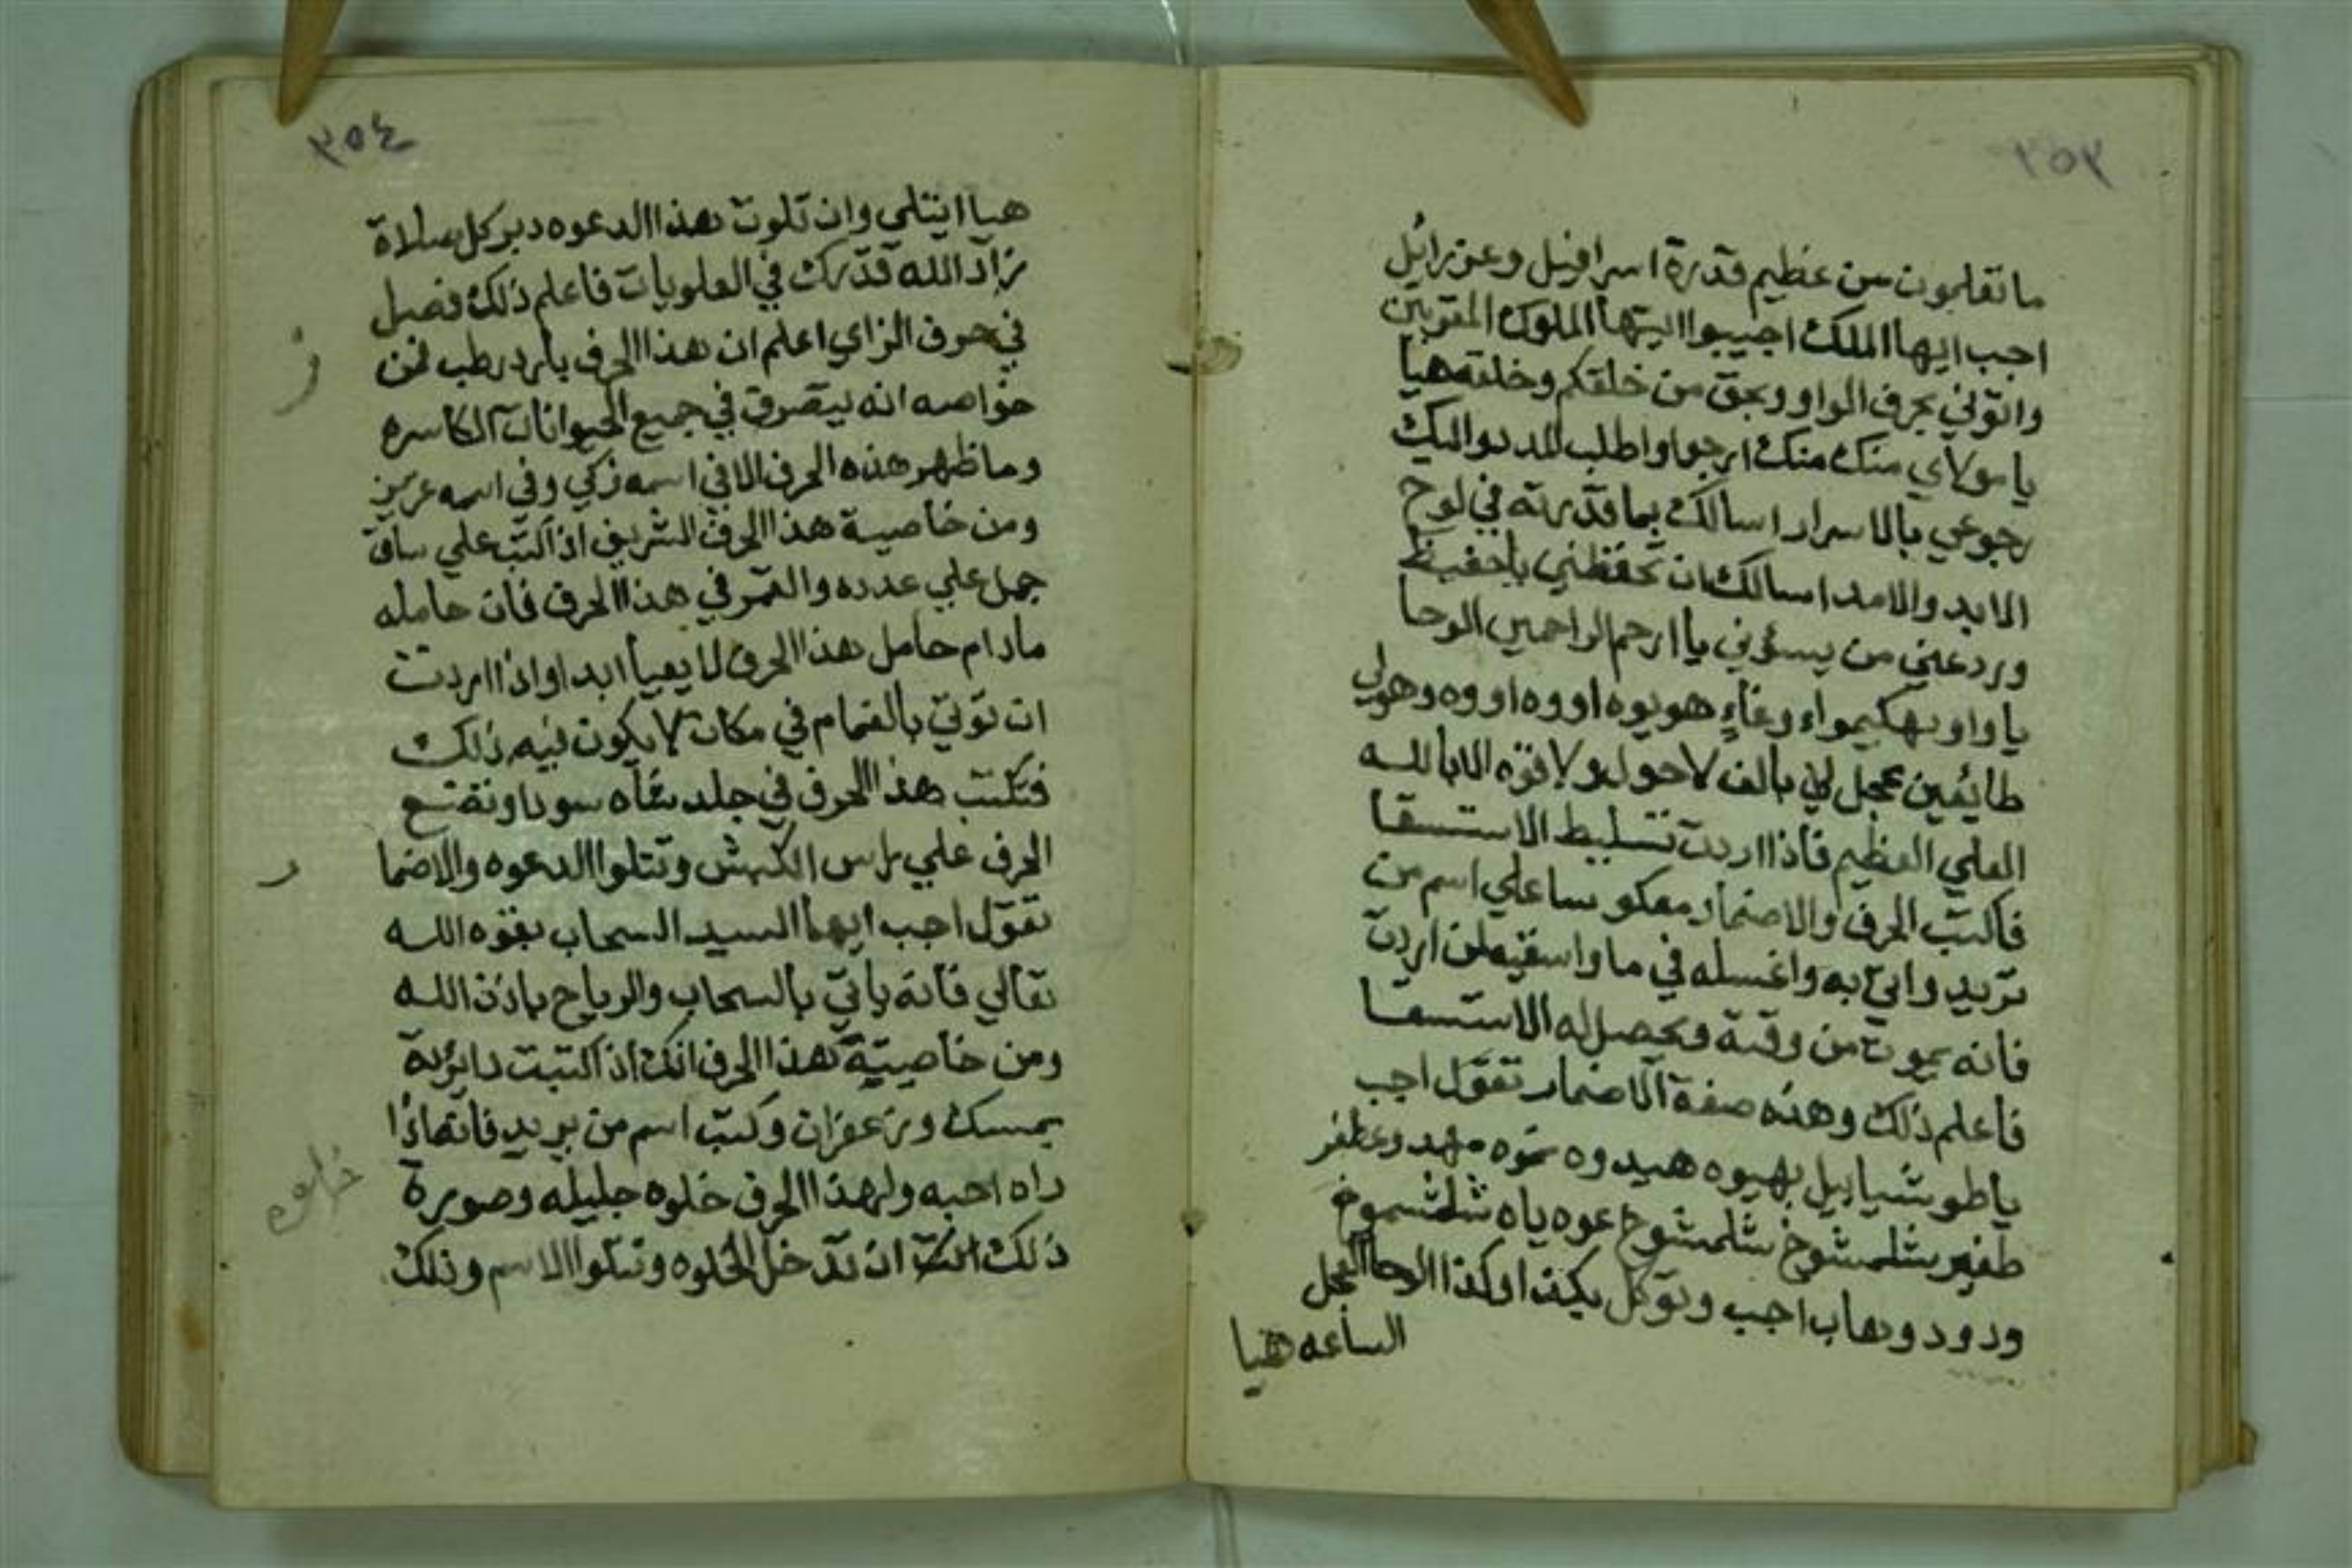 ٣٥٣
ما تعلمون من عظيم قدرة اسرافيل وعزرائيل
اجب ايها الملك اجيبوا ايتها الملوك المقربين
واتوني بحرف الواو وبحق من خلقكم وخلقه هيا
يا مولاي منك منك ارجوا واطلب المدد واليك
رجوعي بالاسرار اسالك بما قدرته في لوح
الابد والامد اسالك ان تحفظني يا حفيظ
ورد عني من يسؤني يا ارحم الراحمين الوحا
يا واو بهكيمواء وعاء هويوه اووه اووه وهولي
طائعين عجل لي بالف لاحول ولا قوه الا بالله
العلي العظيم فاذا اردت تسليط الاستسقا
فاكتب الحرف والاضمار معكوسا علي اسم من
تريد واتي به واغسله في ما واسقيه لمن اردت
فانه يموت من وقته ويحصل له الاستسقا
فاعلم ذلك وهذه صفة الاضمار تقول اجب
يا طوشياييل بهيوه هيدوه
شلمشوخ شلمشوخ عوه ياه شلمشموخ
ودود وهاب اجب وتوكل بكذا وكذا الوحا العجل
الساعه هيا
٣٥٤
هيا ايتلي وان تلوت هذا الدعوه دبر كل صلاة
زاد الله قدرك في العلويات فاعلم ذلك فصل
في حرف الزاي اعلم ان هذا الحرف بارد رطب فمن
خواصه انه يتصرف في جميع الحيوانات الكاسره
وما ظهر هذه الحرف الا في اسمه زكي وفي اسمه عزيز
ومن خاصية هذا الحرف الشريف اذا كتب علي ساق
جمل علي عدده والقمر في هذا الحرف فان حامله
مادام حامل هذا الحرف لا يعيا ابدا واذا اردت
ان توتي بالغمام في مكان لا يكون فيه ذلك
فتكتب هذا الحرف في جلد شاه سودا وتضع
الحرف علي راس الكبش وتتلوا الدعوه والاضما
ر
تقول اجب ايها السيد السحاب بقوه الله
تعالي فانه ياتي بالسحاب والرياح باذن الله
ومن خاصيتة هذا الحرف انك اذا كتبت دايرة
بمسك وزعفران وكتب اسم من يريد فانها اذا
راه احبه ولهذا الحرف خلوه جليله وصورة
ذلك انك ان تدخل الخلوه وتتلوا الاسم وذلك
ز
خلوه